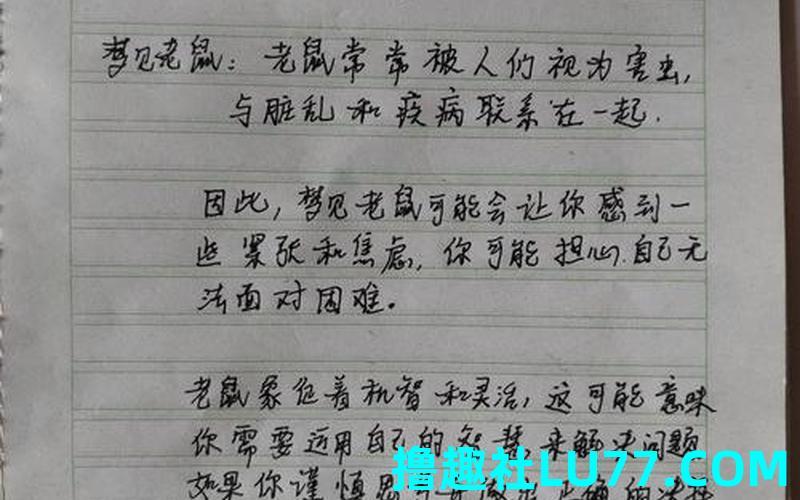 梦见老鼠：老鼠常常被人们视为害虫，
与脏乱和疾病联系在一起.
因此，梦见老鼠可能会让你感到一
些紧张和焦虑，你可能担心自己无
法面对困难。
老鼠象征着机智和灵活，这可能意味
你需要运用自己的智慧来解决问题
如果你谨慎思
撸趣社LU77.COM